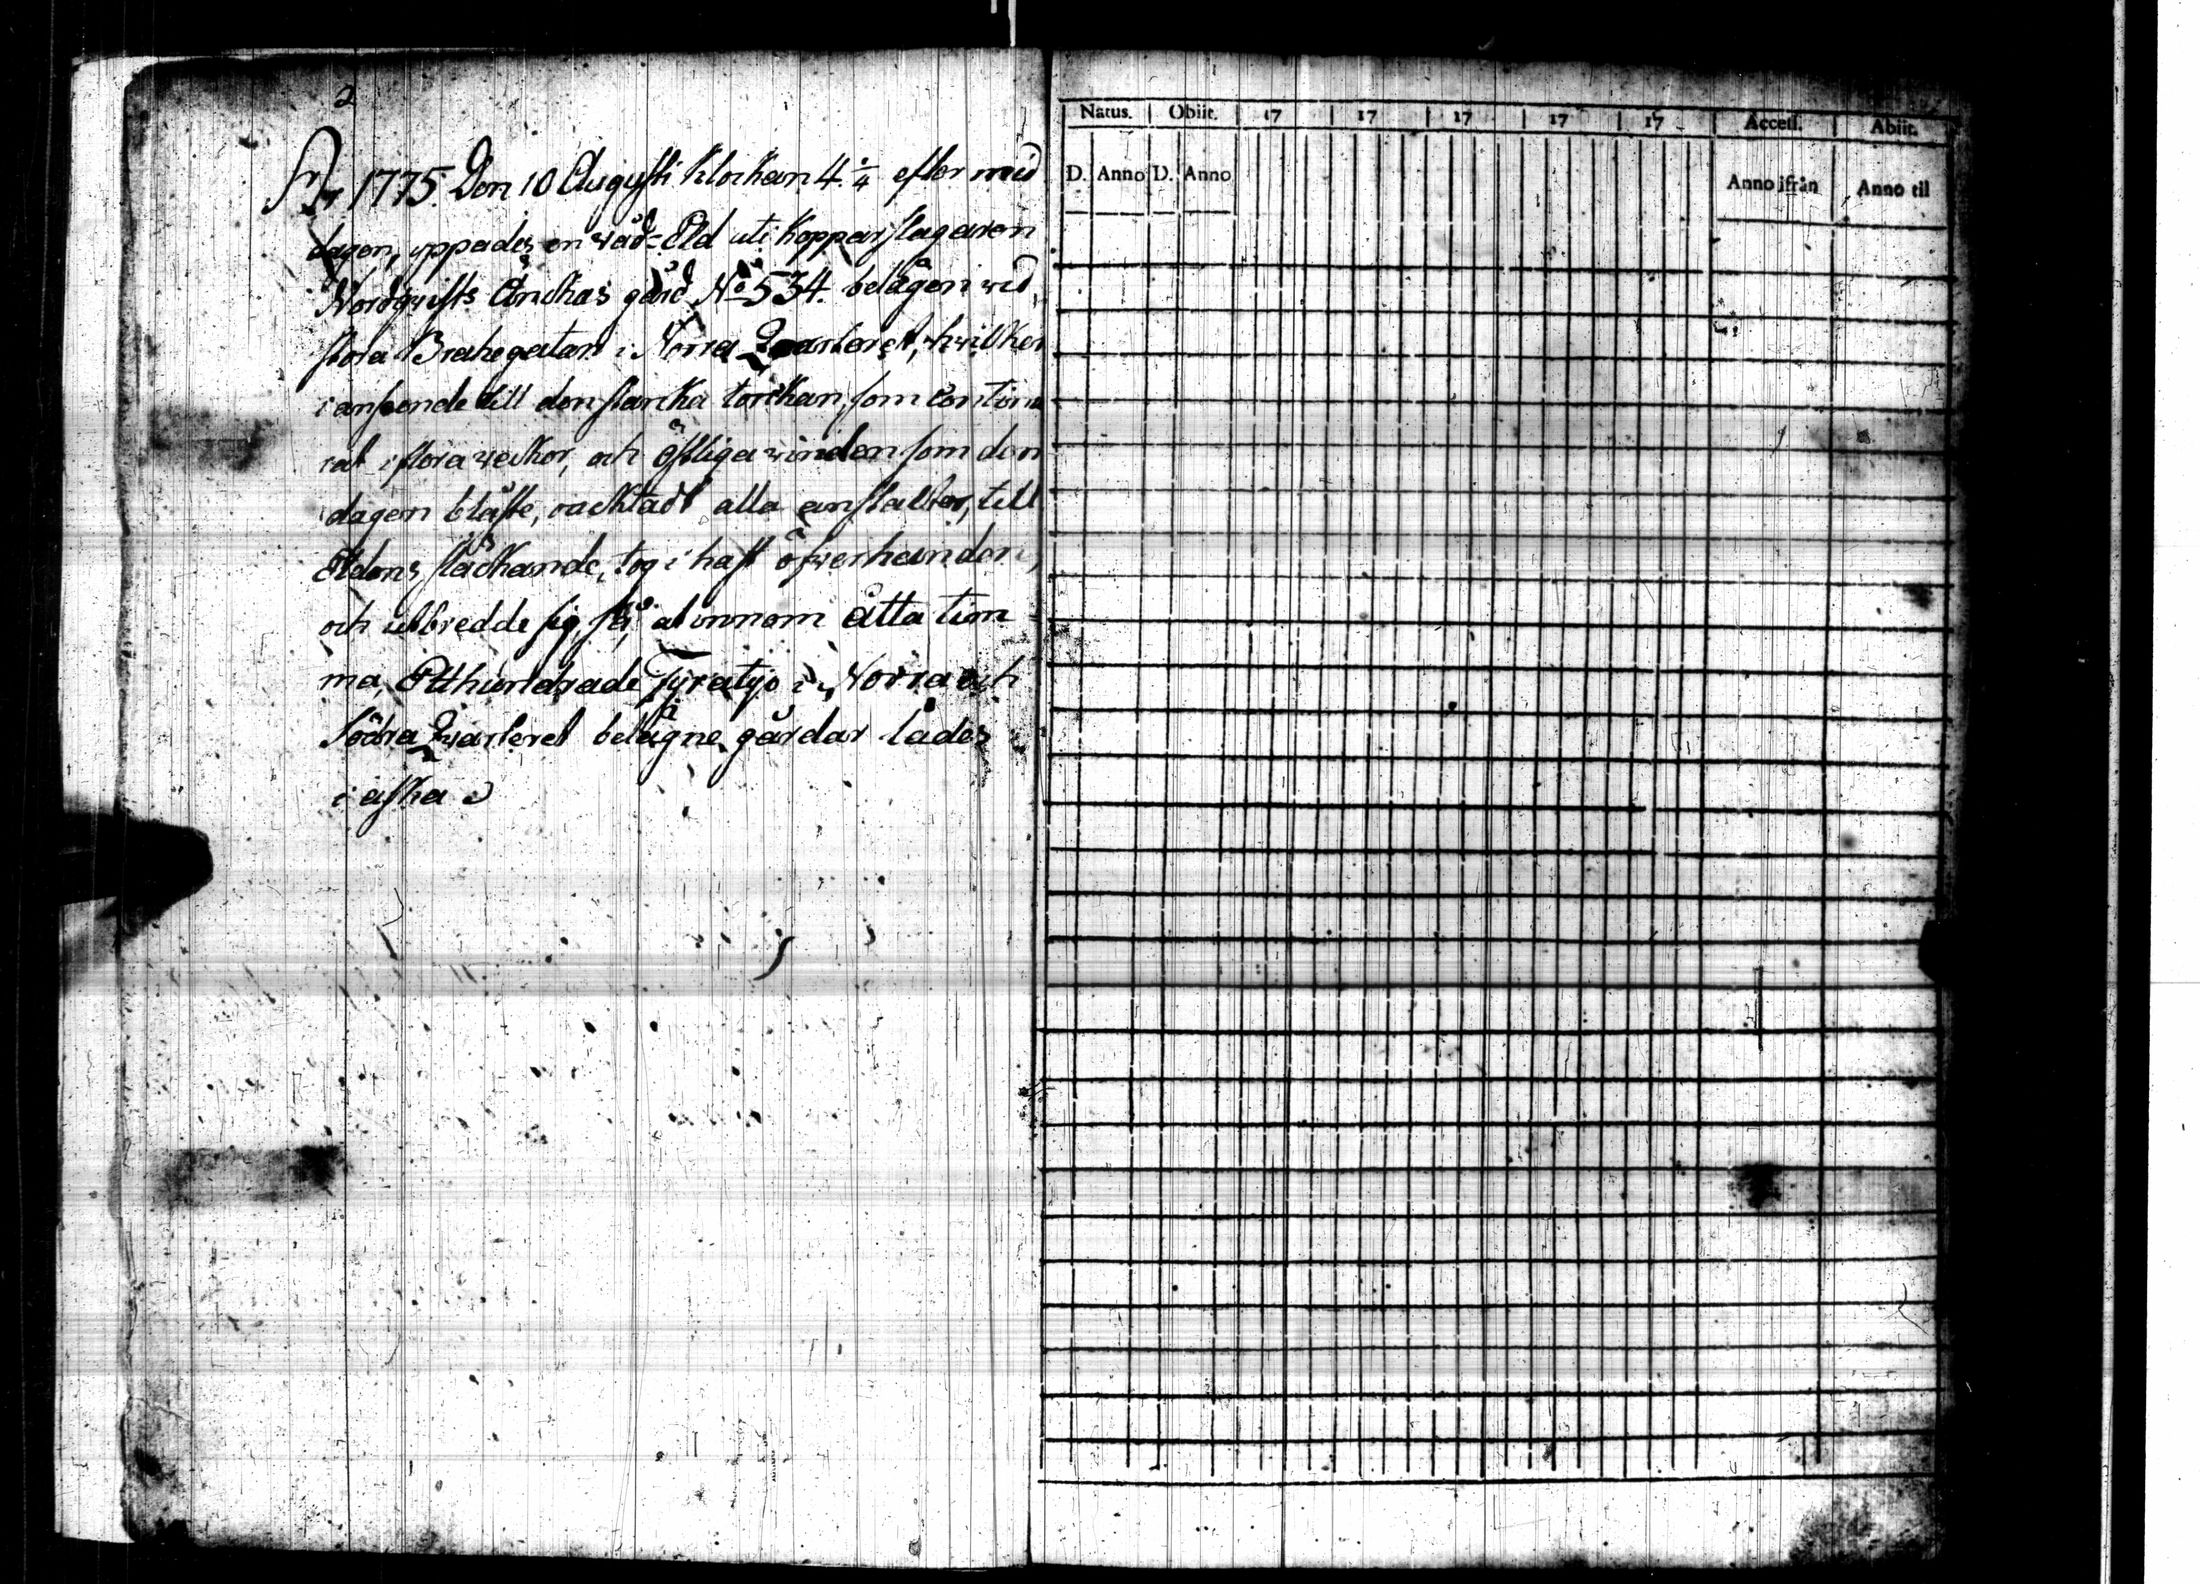 2
År 1775. Den 10 Augusti klockan 4 ¼ efter mid
dagen, yppades en wåd=Eld uti Kopparslagaren
Nordqvists Änckas gård No 534. belägen wid
stora Brahegatan i Norra Qvarteret, hwilken
i anseende till den starcka torckan, som continu
rat i flera weckor, och östliga winden som den
dagen blåste, oacktadt alla anstalter, till
Eldens släckande, tog i hast öfwerhanden,
och utbredde sig, så, at innom åtta tim
ma, Etthundrade Fyratijo i Norra och
Södra Qvarteret belägne gårdar lades
i aska
Natus. Obiit. 17 17 17 17 17 Accessi. Abiit.
D. Anno D. Anno Anno ifrån Anno til